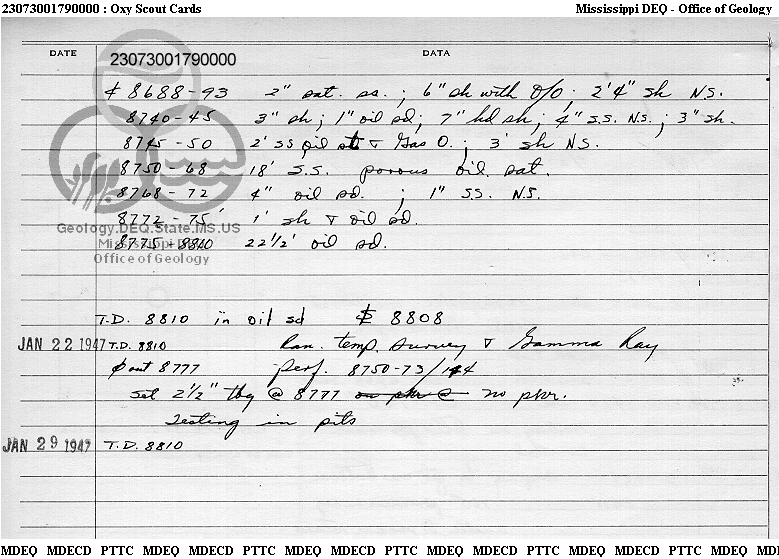 23073001790000 : Oxy Scout Cards Mississippi DEQ - Office of Geology
DATE 23073001790000 DATA
₵ 8688-93 2" sat. ss. ; 6" sh with O/O; 2'4" sh N.S.
8740-45 3" sh ; 1" oil sd; 7" hd sh; 4" S.S. N.S. ; 3" sh.
8745-50 2' SS oil st & Gas O. ; 3' sh N.S.
8750-68 18' S.S. porous oil sat.
8768-72 4" oil sd. ; 1" S.S. N.S.
8772-75' 1' sh & oil sd.
Geology.DEQ.State.MS.US
8775-8810 22 1/2' oil sd.
Mississippi DEQ
Office of Geology
T.D. 8810 in oil sd ₵ 8808
JAN 22 1947 T.D. 8810 Ran. temp. survey & Gamma Ray
out 8777 perf. 8750-73/144
Set 2 1/2" tbg @ 8777 on pkr @ no pkr.
Testing in pits
JAN 29 1947 T.D. 8810
MDEQ MDECD PTTC MDEQ MDECD PTTC MDEQ MDECD PTTC MDEQ MDECD PTTC MDEQ MD